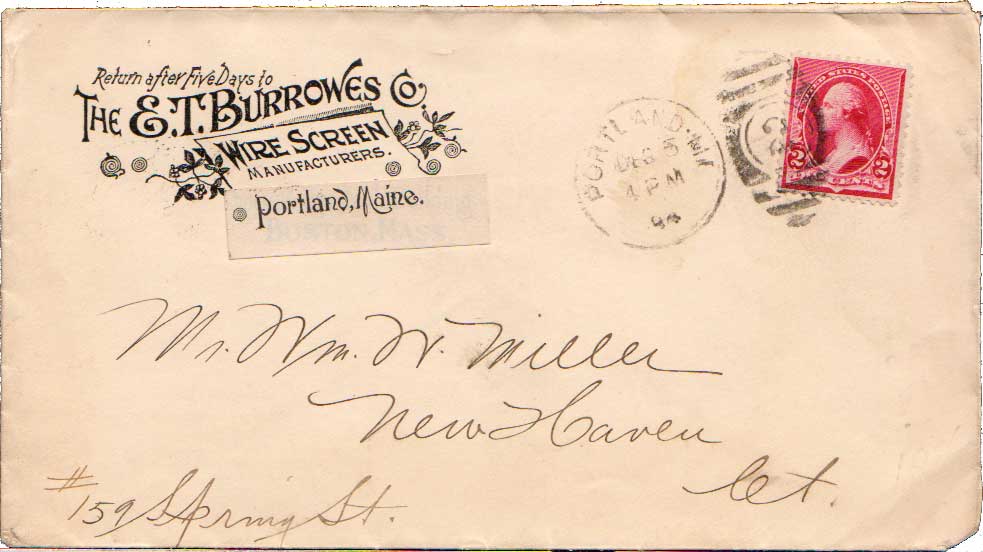 Return after Five Days to
THE E.T. BURROWES CO.
WIRE SCREEN
MANUFACTURERS.
Portland, Maine.
BOSTON, MASS
PORTLAND, ME
DEC 5
4 PM
94
UNITED STATES POSTAGE
2 2
CENTS
Mr. Wm. W. Miller
New Haven
Ct.
#159 Spring St.